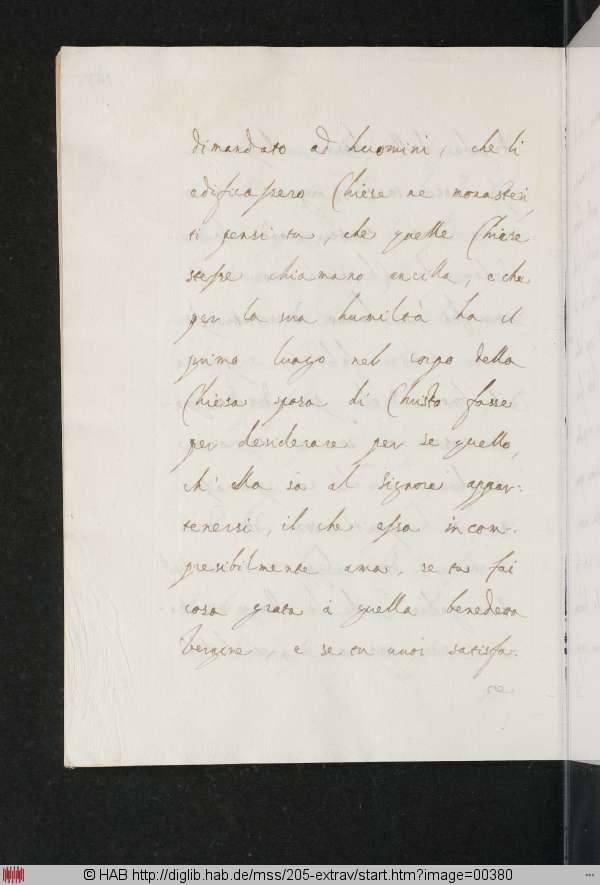 dimandato ad huomini, che li
edificassero Chiese ne monasteri,
ti pensi tu, che quelle Chiese
stesse chiamano ancilla, e che
per la sua humiltà ha il
primo luogo nel corpo della
Chiesa sposa di Christo fosse
per desiderare per se quello,
ch' ella sa al Signore appar-
tenersi, il che essa incom-
presibilmente ama, se tu fai
cosa grata à quella benedetta
Vergine, e se tu vuoi satisfa-
re
© HAB http://diglib.hab.de/mss/205-extrav/start.htm?image=00380